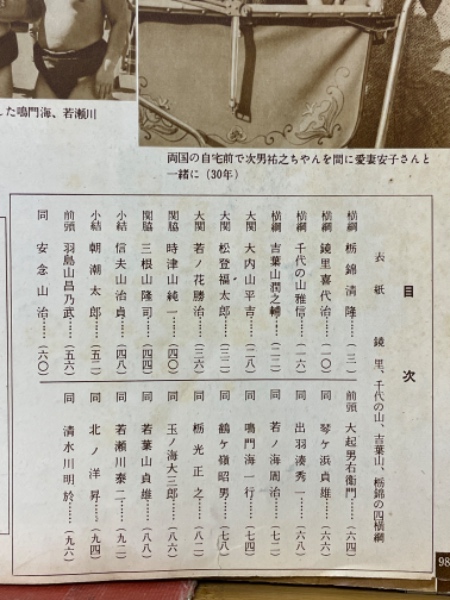 した鳴門海、若瀬川
両国の自宅前で次男祐之ちゃんを間に愛妻安子さんと
一緒に（30年）
目次
表紙　鏡里、千代の山、吉葉山、栃錦の四横綱
横綱　栃錦清隆……（三）
横綱　鏡里喜代治……（一〇）
横綱　千代の山雅信……（一六）
横綱　吉葉山潤之輔……（二二）
大関　大内山平吉……（二八）
大関　松登福太郎……（三二）
大関　若ノ花勝治……（三六）
関脇　時津山純一……（四〇）
関脇　三根山隆司……（四四）
小結　信夫山治貞……（四八）
小結　朝潮太郎……（五二）
前頭　羽島山昌乃武……（五六）
同　安念山治……（六〇）
前頭　大起男右衛門……（六四）
同　琴ケ浜貞雄……（六六）
同　出羽湊秀一……（六八）
同　若ノ海周治……（七二）
同　鳴門海一行……（七四）
同　鶴ケ嶺昭男……（七八）
同　栃光正之……（八二）
同　玉ノ海大三郎……（八六）
同　若葉山貞雄……（八八）
同　若瀬川泰二……（九二）
同　北ノ洋昇……（九四）
同　清水川明於……（九六）
98